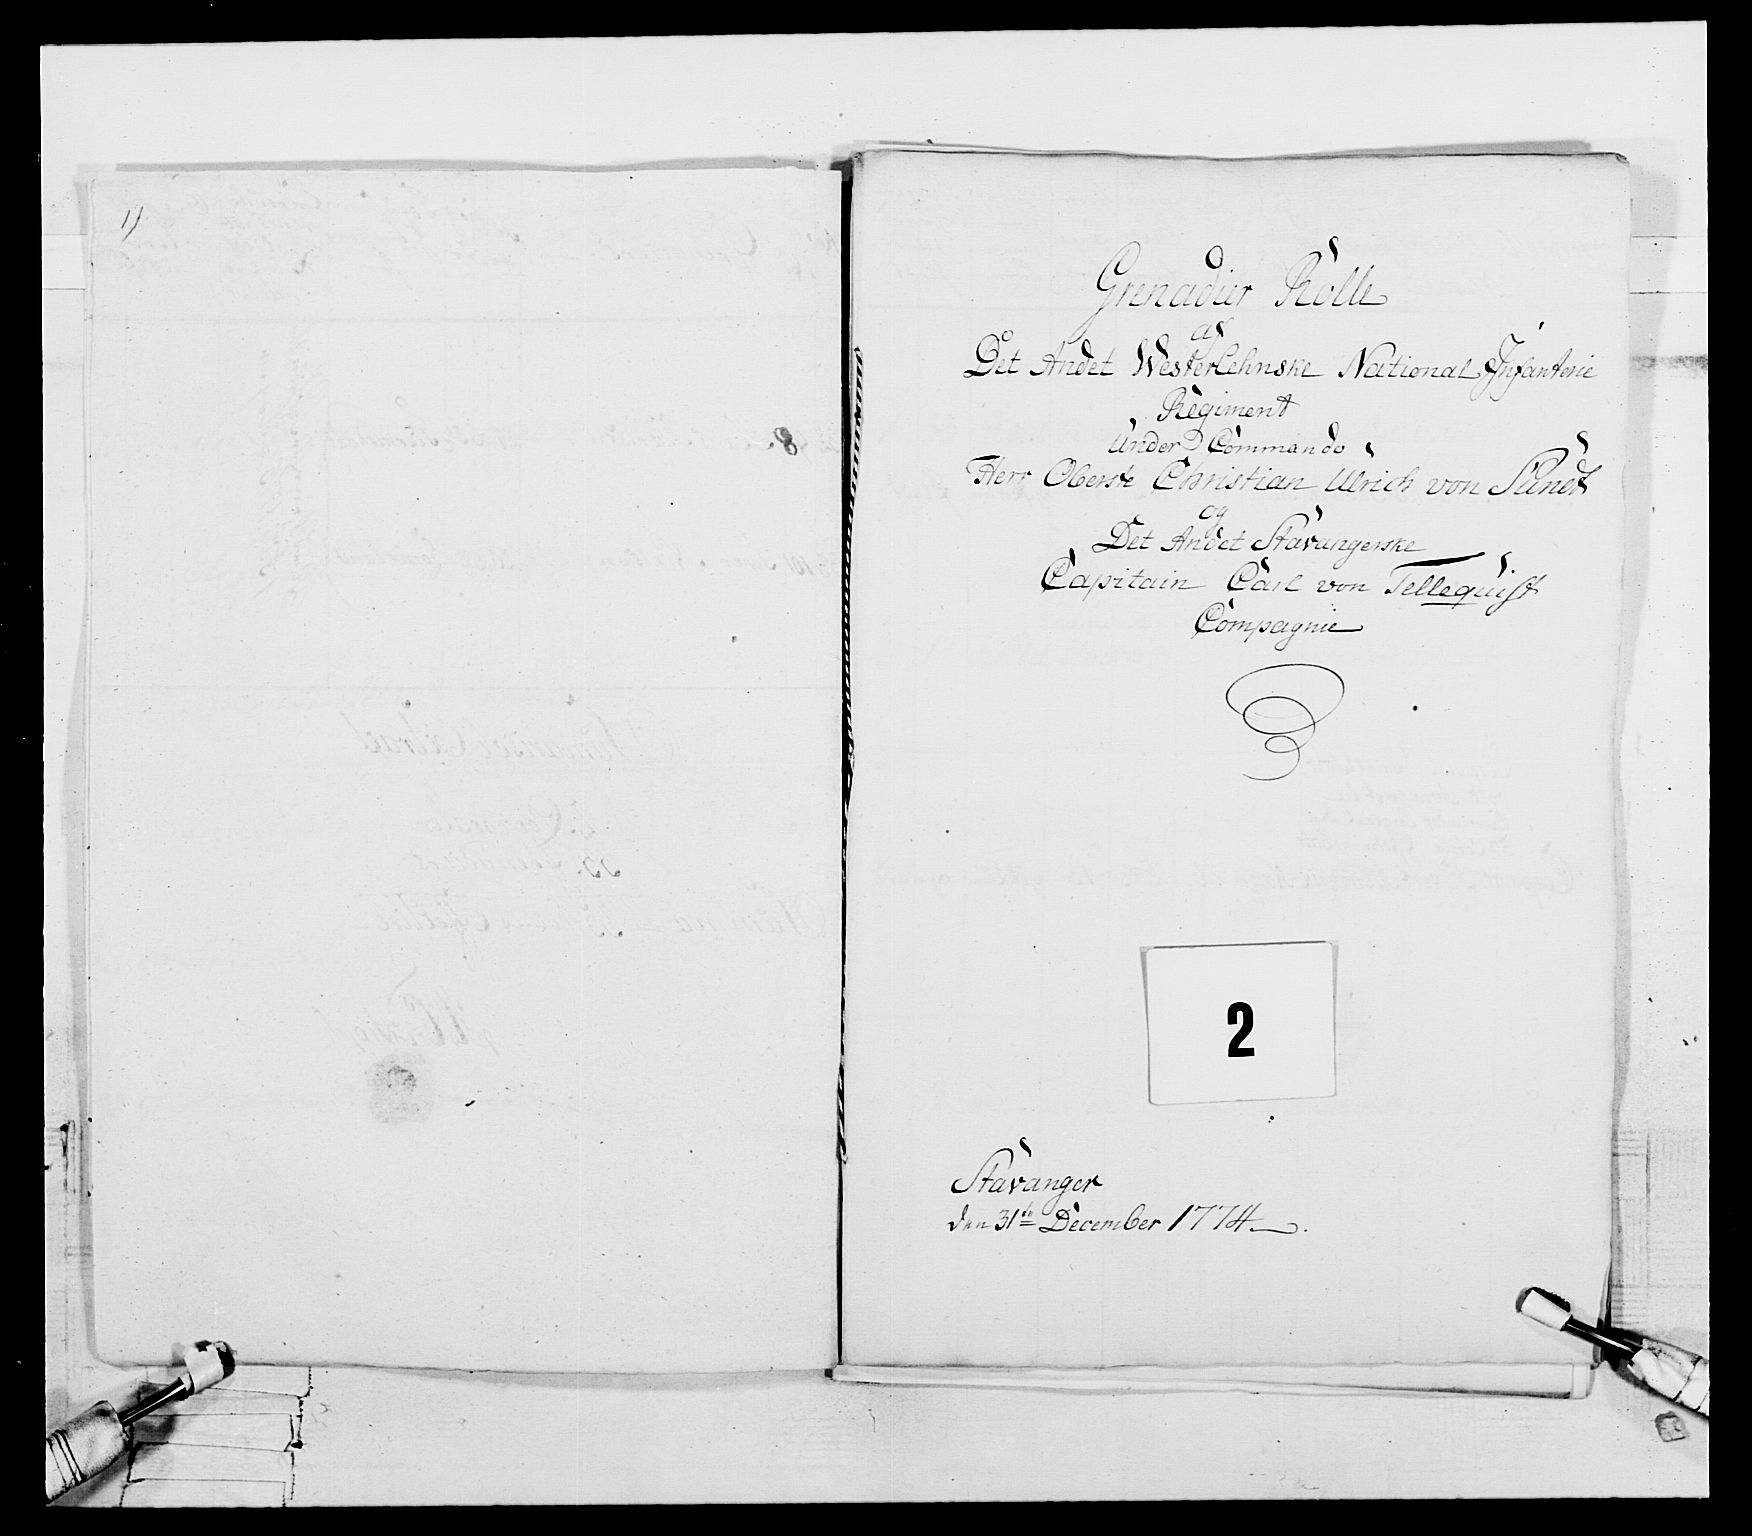 1)
8.
Grenadier Rolle
af
Det Andet Westerlehnske National Infanterie
Regiment
Under Commando
Herr Oberste Christian Ulrich von
og
Det Andet Stavangerske
Capitain Carl von Tellequist
Compagnie
2
Stavanger
den 31te December 1774